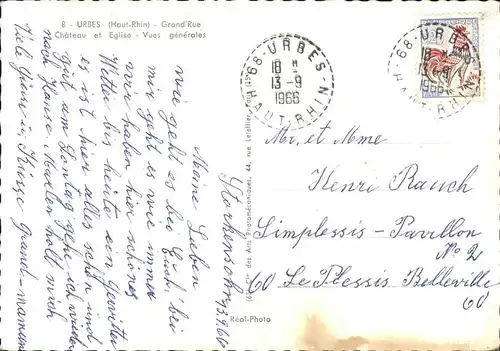 8 - URBES (Haut-Rhin) - Grand'Rue
Château et Eglise - Vues générales
68-URBES
18 H
13-9
1966
HAUT-RHIN
68-URBES
18 H
13-9
1966
HAUT-RHIN
Mr, et Mme
Henri Rauch
Simplessis-Pavillon
No 2
60 Le Plessis Belleville
60
Storkensohn 13.9.66
Meine Lieben
wie geht es bei Euch, bei
mir geht es wie immer
wir haben hier schönes
Wetter bis heute ein Gewitter
es ist hier alles schön und
gut am Sontag gehe ich wieder
nach Hause Marlen holt mich
Viele Grüsse u. Küsse Grand-maman
Réal-Photo